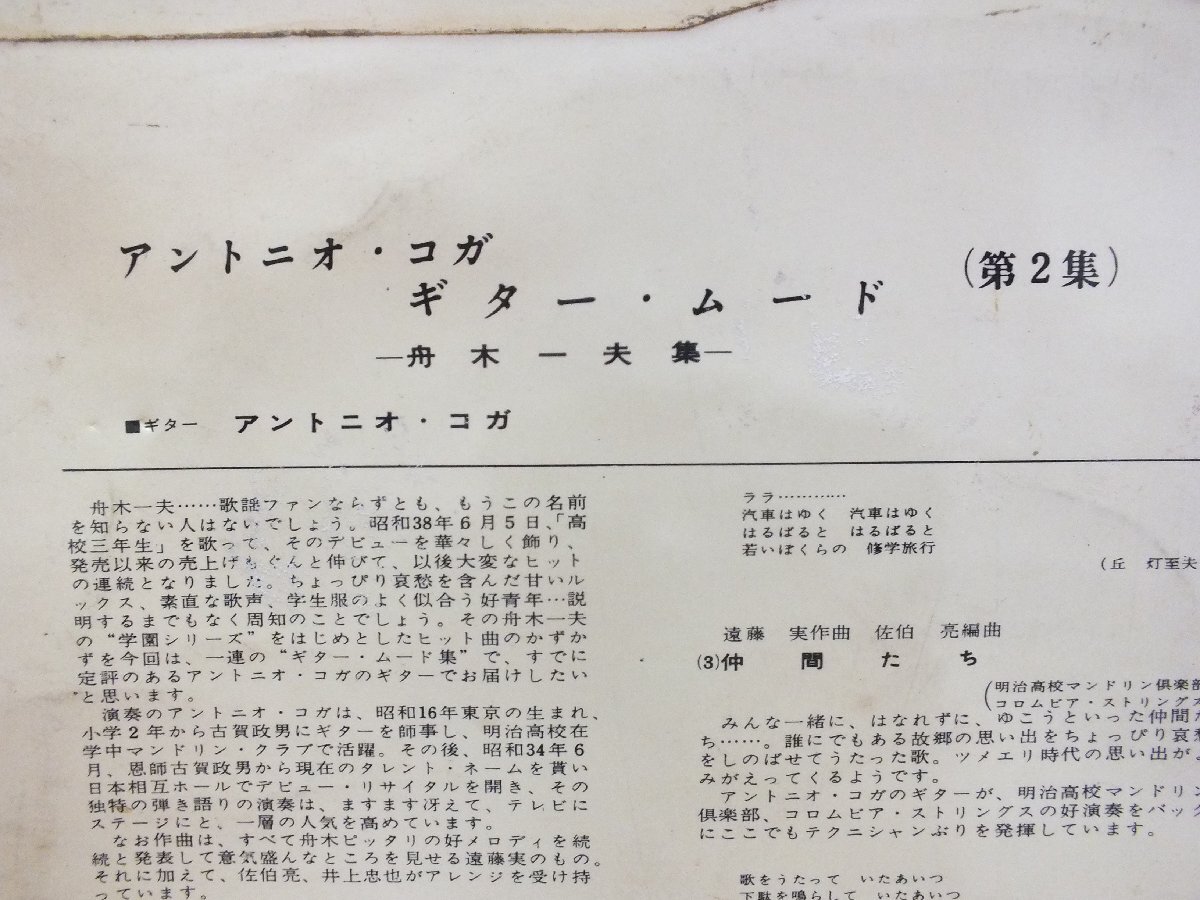 アントニオ・コガ
ギター・ムード
(第2集)
―舟木一夫集―
■ギター アントニオ・コガ
舟木一夫……歌謡ファンならずとも、もうこの名前
を知らない人はないでしょう。昭和38年6月5日、「高
校三年生」を歌って、そのデビューを華々しく飾り、
発売以来の売上げもぐんと伸びて、以後大変なヒット
の連続となりました。ちょっぴり哀愁を含んだ甘いル
ックス、素直な歌声、学生服のよく似合う好青年…説
明するまでもなく周知のことでしょう。その舟木一夫
の“学園シリーズ”をはじめとしたヒット曲のかずか
ずを今回は、一連の“ギター・ムード集”で、すでに
定評のあるアントニオ・コガのギターでお届けしたい
と思います。
演奏のアントニオ・コガは、昭和16年東京の生まれ、
小学2年から古賀政男にギターを師事し、明治高校在
学中マンドリン・クラブで活躍。その後、昭和34年6
月、恩師古賀政男から現在のタレント・ネームを貰い
日本相互ホールでデビュー・リサイタルを開き、その
独特の弾き語りの演奏は、ますます冴えて、テレビに
ステージにと、一層の人気を高めています。
なお作曲は、すべて舟木ピッタリの好メロディを続
続と発表して意気盛んなところを見せる遠藤実のもの。
それに加えて、佐伯亮、井上忠也がアレンジを受け持
っています。
ララ…………
汽車はゆく 汽車はゆく
はるばると はるばると
若いぼくらの 修学旅行
(丘 灯至夫
遠藤 実作曲 佐伯 亮編曲
(3)仲間たち
(明治高校マンドリン倶楽部
コロムビア・ストリングス
みんな一緒に、はなれずに、ゆこうといった仲間た
ち……。誰にでもある故郷の思い出をちょっぴり哀愁
をしのばせてうたった歌。ツメエリ時代の思い出が、
みがえってくるようです。
アントニオ・コガのギターが、明治高校マンドリン
倶楽部、コロムビア・ストリングスの好演奏をバック
にここでもテクニシャンぶりを発揮しています。
歌をうたって いたあいつ
下駄を鳴らして いたあいつ